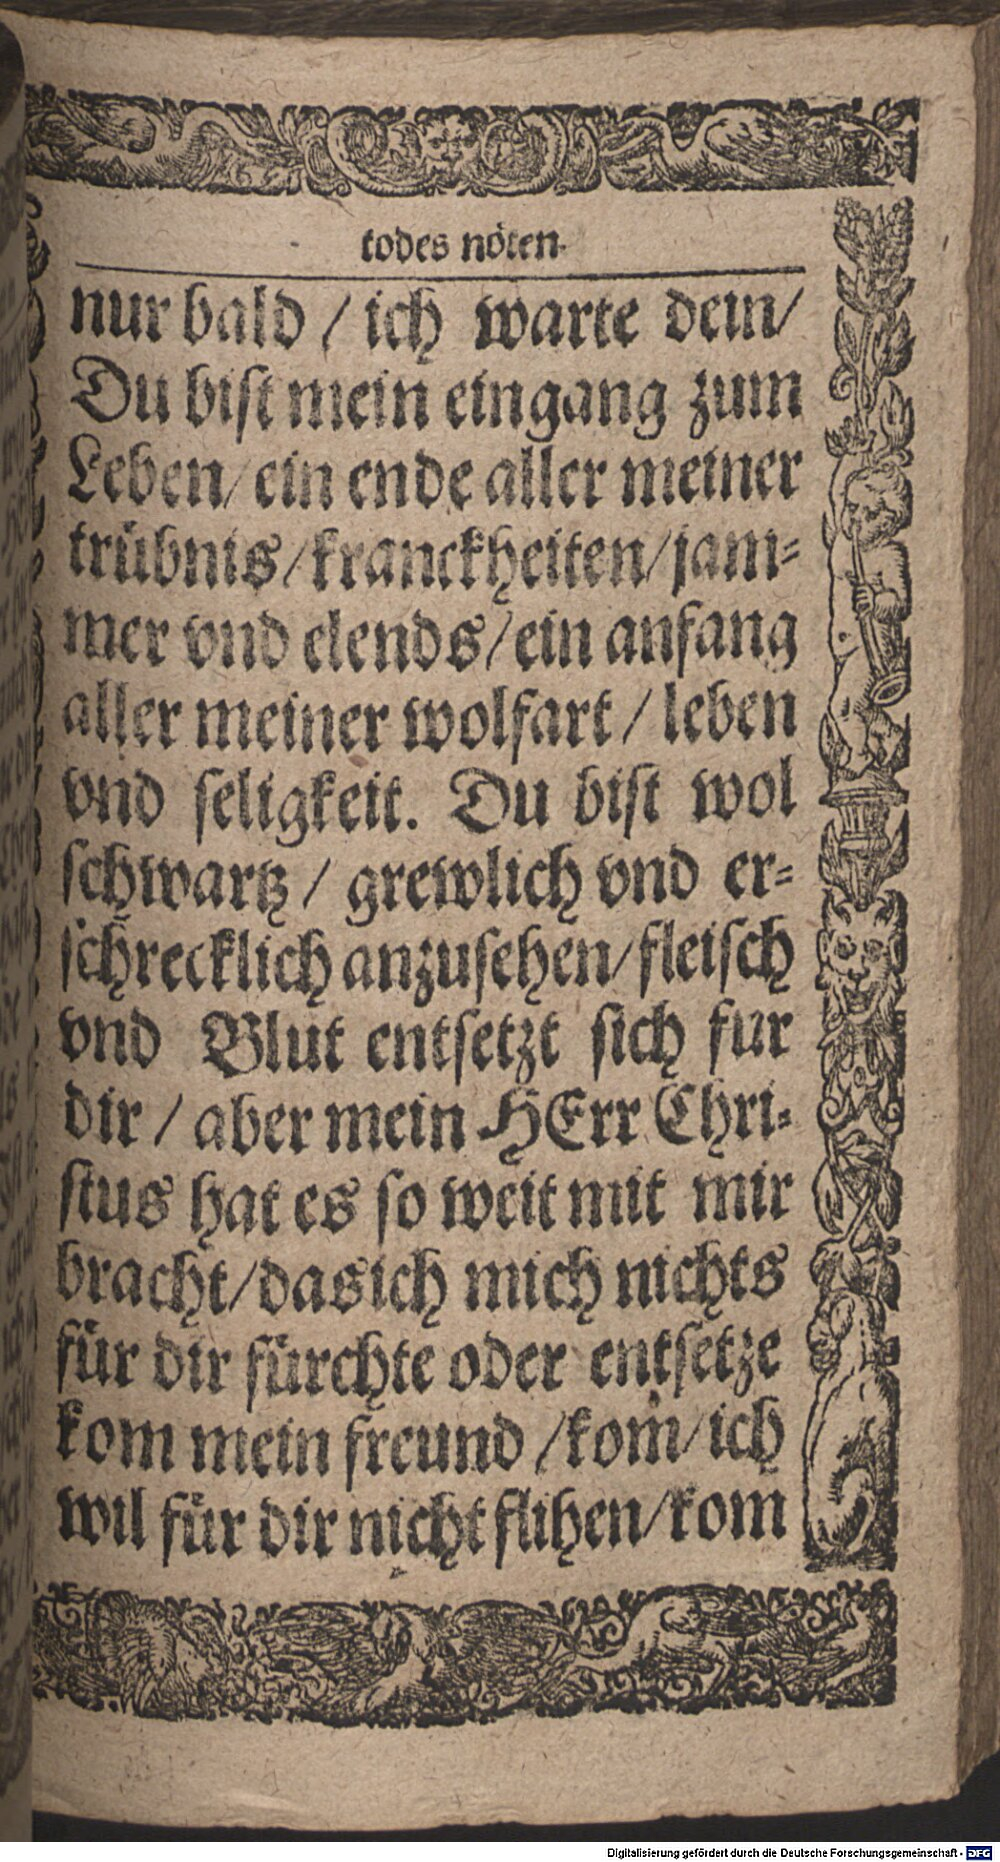 todes nöten.
nur bald / ich warte dein/
Du bist mein eingang zum
Leben/ ein ende aller meiner
trübnis/kranckheiten/jam⸗
mer vnd elends/ein anfang
aller meiner wolfart / leben
vnd seligkeit. Du bist wol
schwartz / grewlich vnd er⸗
schrecklich anzusehen/fleisch
vnd Blut entsetzt sich fur
dir / aber mein HErr Chri⸗
stus hat es so weit mit mir
bracht/das ich mich nichts
für dir fürchte oder entsetze
kom mein freund /kom/ich
wil für dir nicht flihen/kom
Digitalisierung gefördert durch die Deutsche Forschungsgemeinschaft - DFG